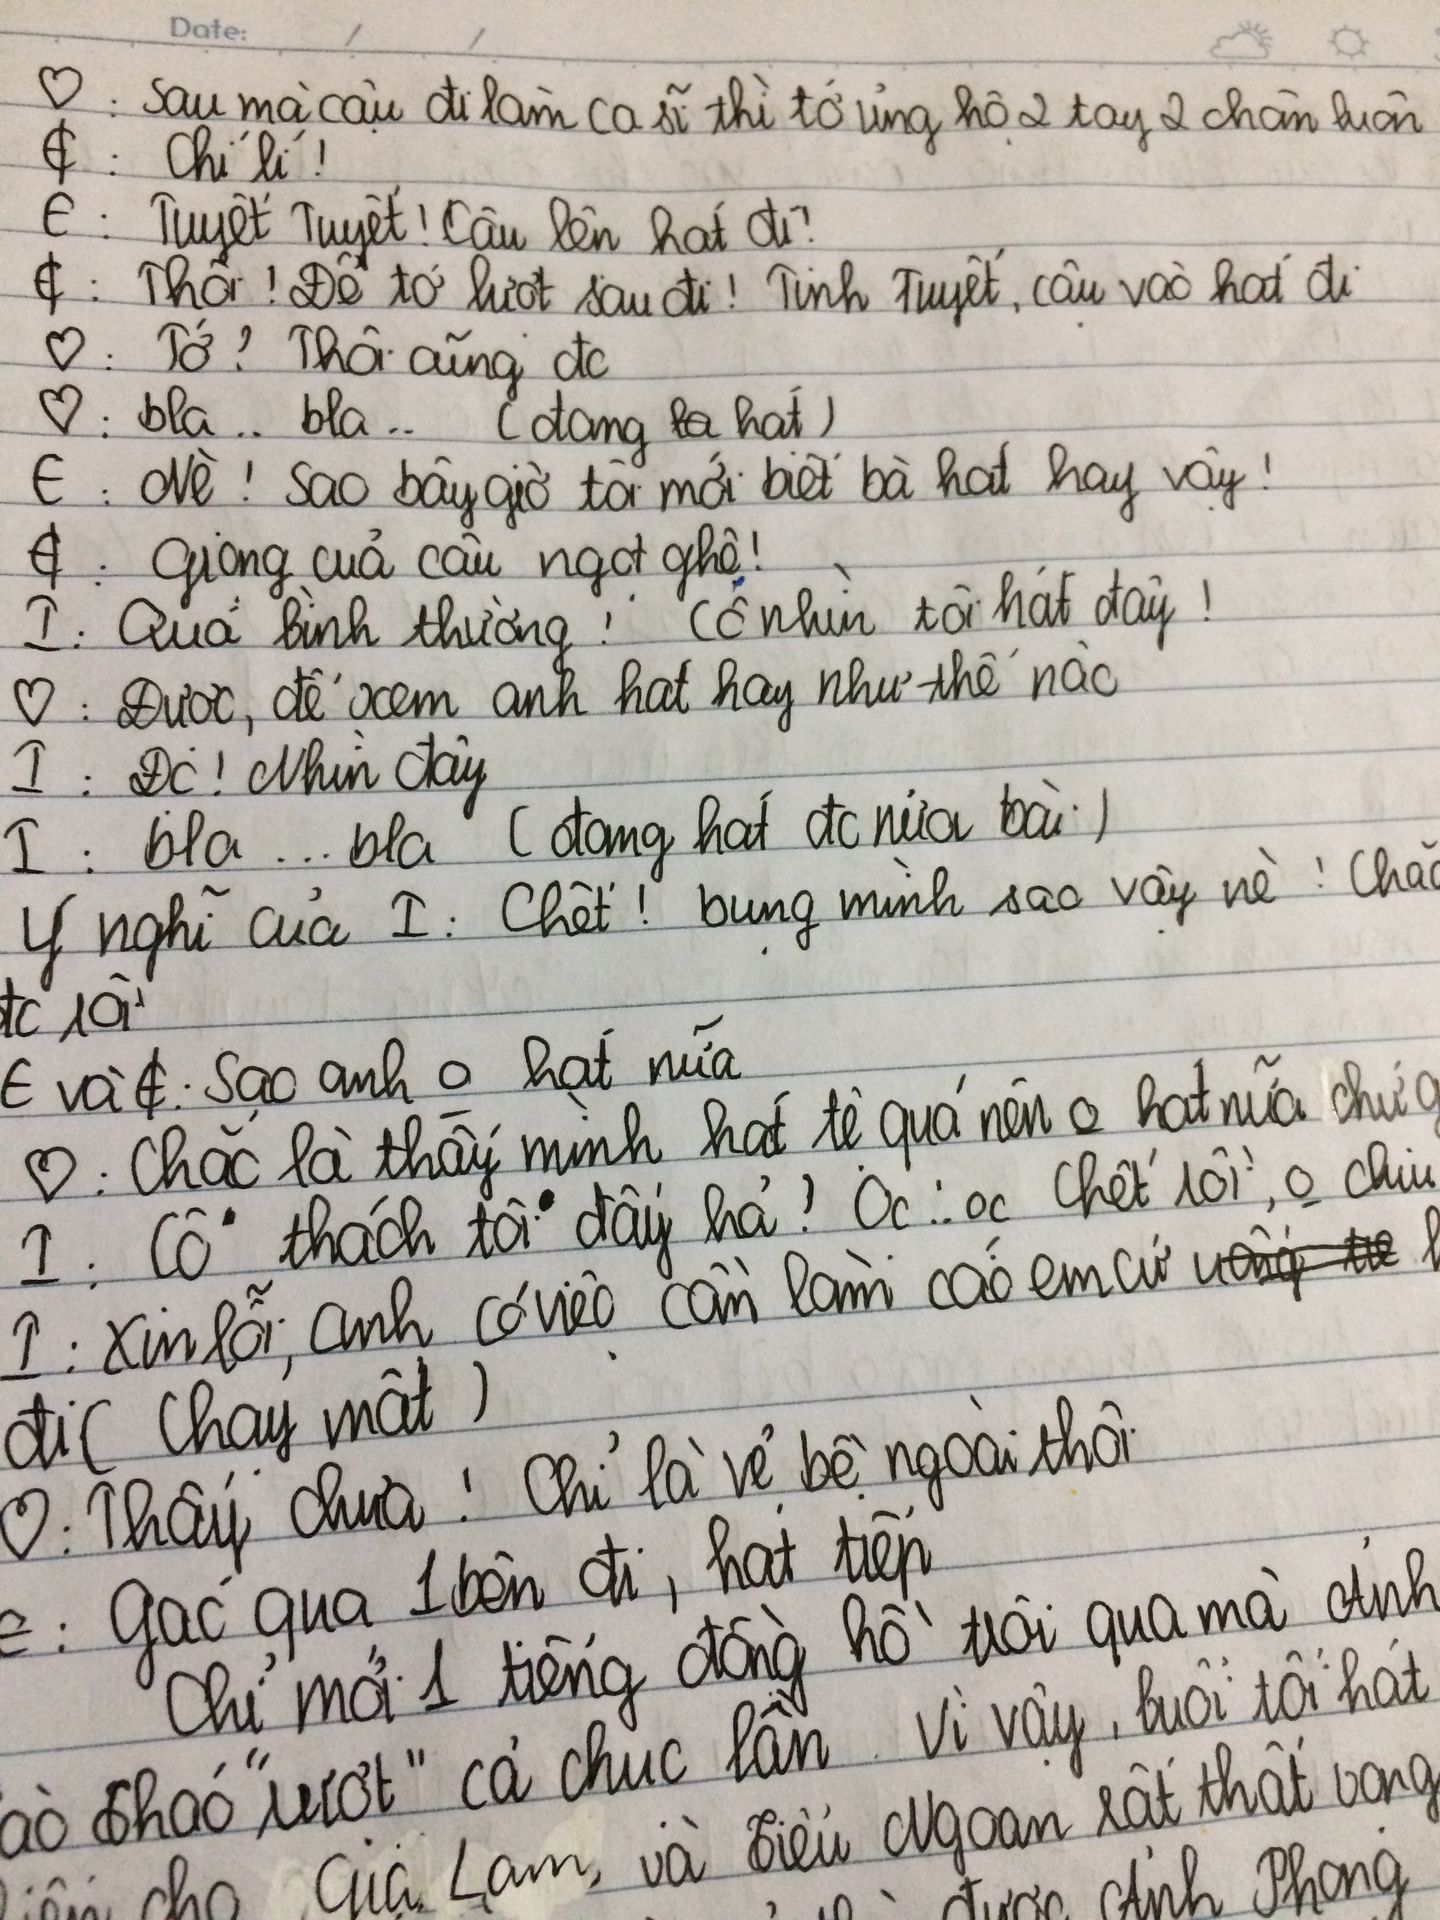 Date: / /
♡ : Sau mà cậu đi làm ca sĩ thì tớ ủng hộ 2 tay 2 chân luôn
₵ : Chí lí !
E : Tuyết Tuyết ! Cậu lên hát đi !
₵ : Thôi ! Để tớ lượt sau đi ! Tinh Tuyết, cậu vào hát đi
♡ : Tớ ? Thôi cũng đc
♡ : bla .. bla .. ( đang hát )
E : Nè ! Sao bây giờ tôi mới biết bà hát hay vậy !
₵ : Giọng của cậu ngọt ghê !
I : Quá bình thường ! Cô nhìn tôi hát đây !
♡ : Được, để xem anh hát hay như thế nào
I : Đc ! Nhìn đây
I : bla ... bla ( đang hát đc nửa bài )
Ý nghĩ của I : Chết ! bụng mình sao vậy nè !
đc rồi
E và ₵ : Sao anh o hát nữa
♡ : Chắc là thấy mình hát tệ quá nên o hát nữa chứ g
I : Cô thách tôi đấy hả ? Ọc ... ọc Chết rồi, o chịu
I : Xin lỗi, anh có việc cần làm các em cứ
đi ( Chạy mất )
♡ : Thấy chưa ! Chỉ là vẻ bề ngoài thôi
e : Gác qua 1 bên đi, hát tiếp
Chỉ mới 1 tiếng đồng hồ trôi qua mà Ảnh
Tháo "rượt" cả chục lần. Vì vậy, buổi tối hát
cho Gia Lam, và Tiểu Ngoan rất thất vọng
được Ảnh Phong